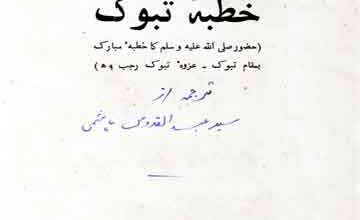 خطبۂ تبوک
(حضور صلی اللہ علیہ و سلم کا خطبۂ مبارک
بمقام تبوک ـ غزوۂ تبوک رجب ۹ھ)
ترجمہ از
سید عبدالقدوس ہاشمی